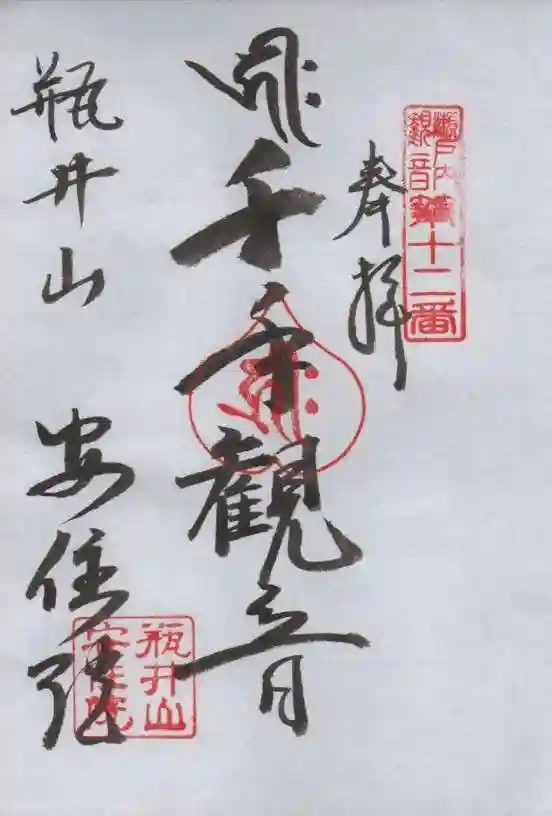 瀬戸内
観音第十二番
奉拝
𑖮𑖿𑖨𑖱𑖾 千手観音
𑖮𑖿𑖨𑖱𑖾
瓶井山 安住院
瓶井山
安住院